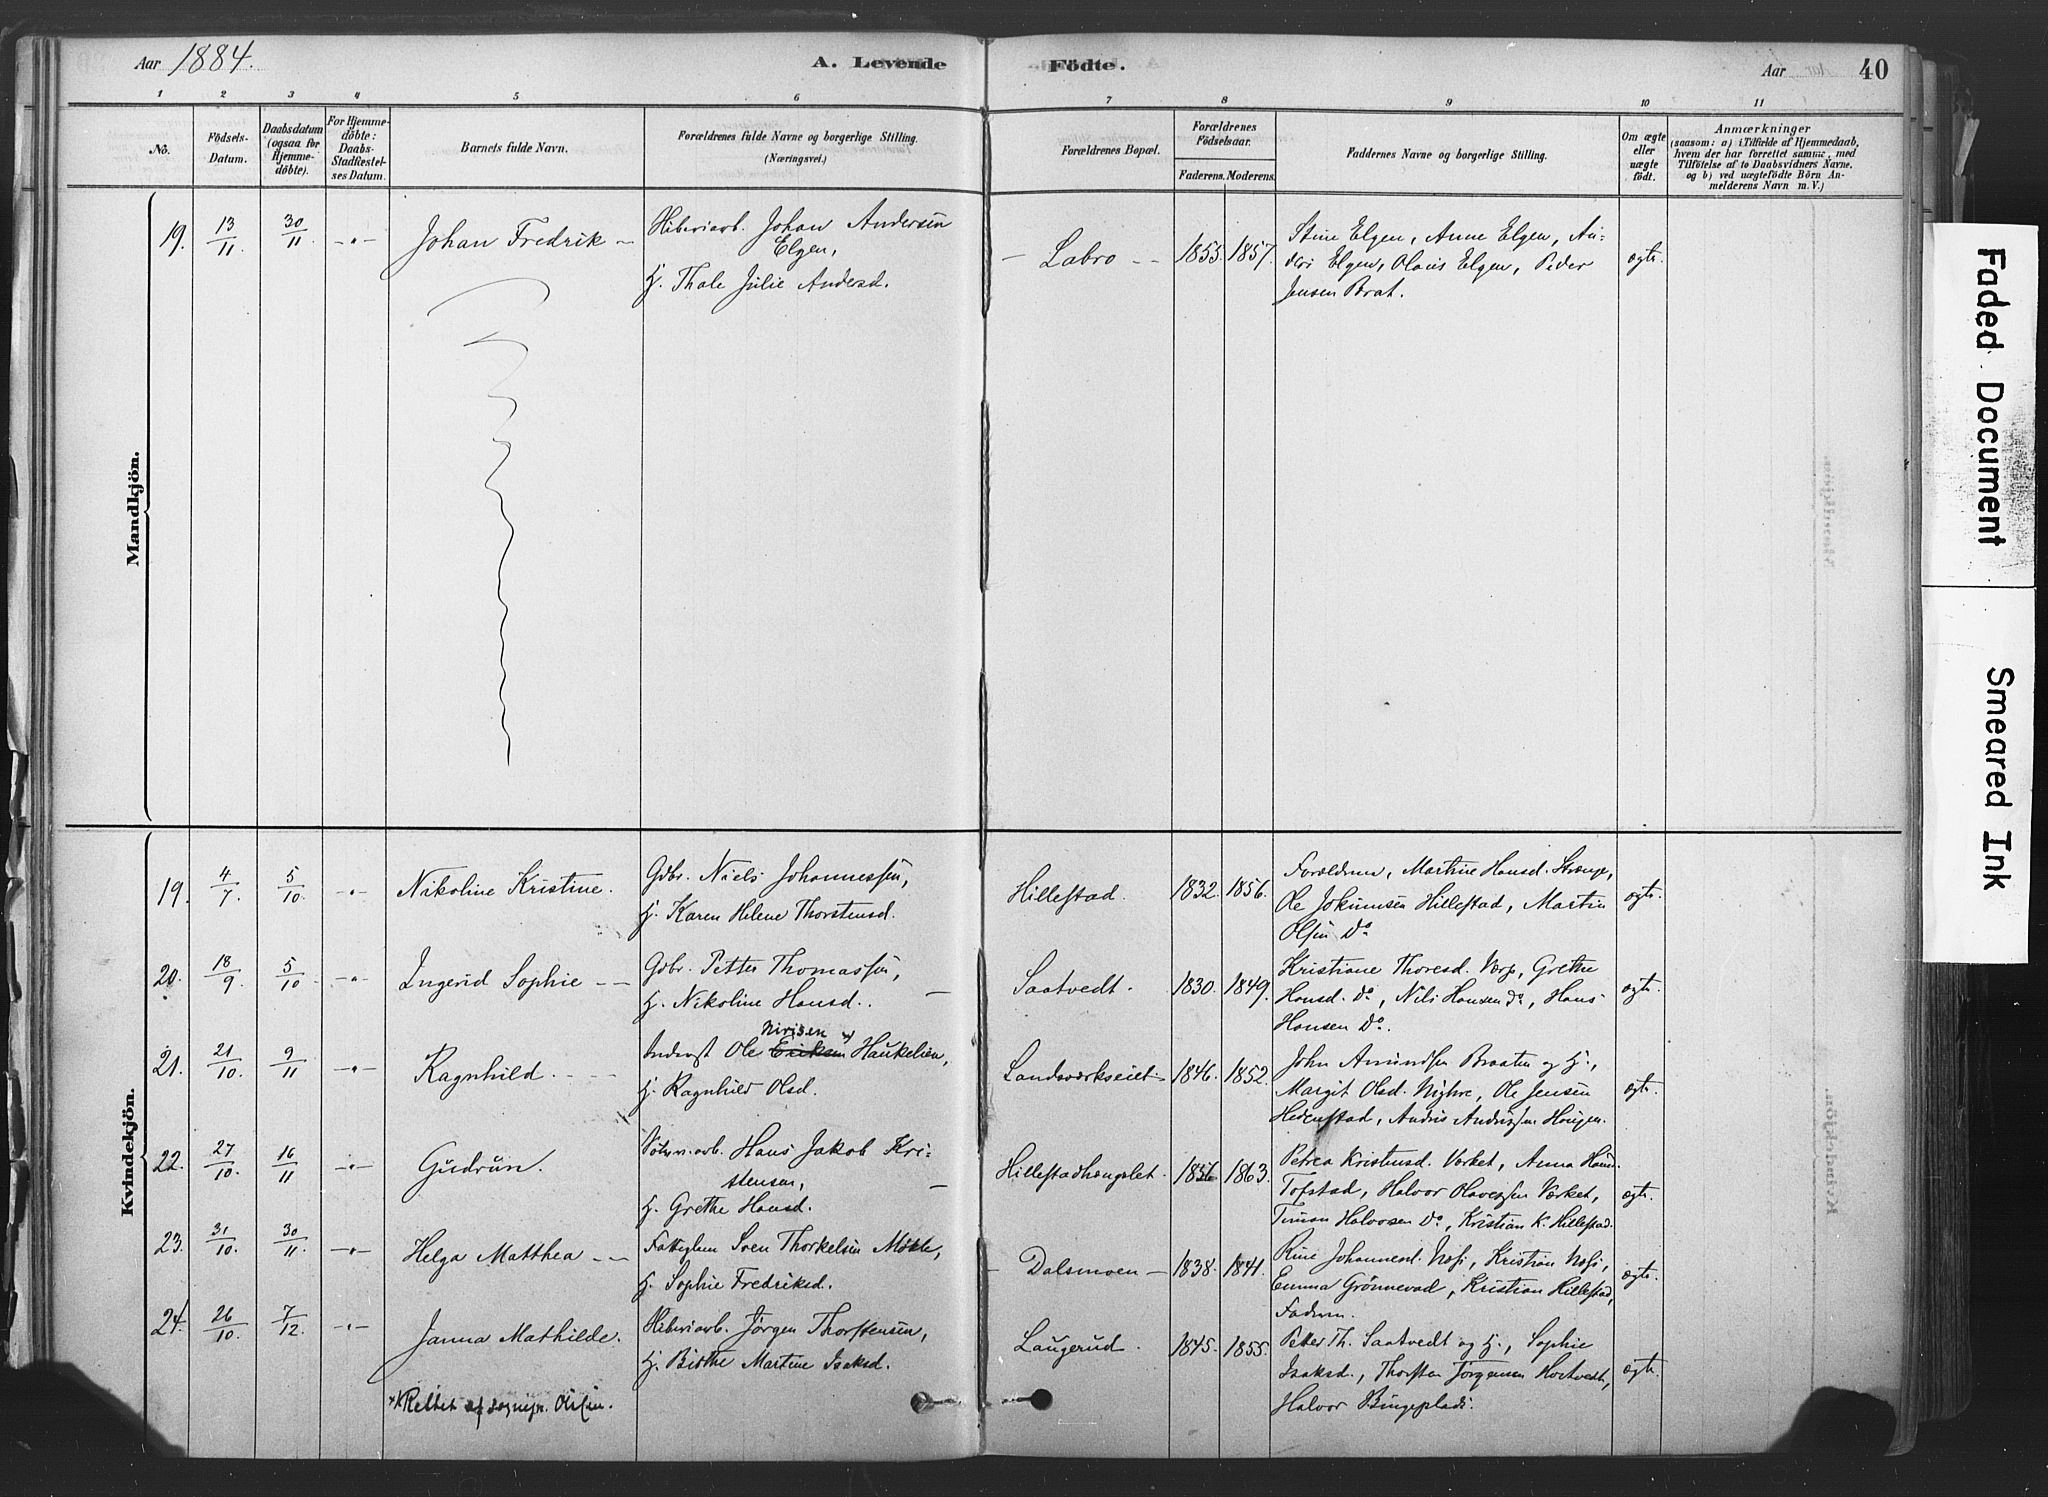 Aar 1884.
A. Levende Födte.
Aar 40
1 2 3 4 5 6 7 8 9 10 11
No.
Födsels-Datum.
Daabsdatum (ogsaa for Hjemmedöbte).
For Hjemmedöbte: Daabs-Stadfæstelses Datum.
Barnets fulde Navn.
Forældrenes fulde Navne og borgerlige Stilling.
(Næringsvei.)
Forældrenes Bopæl.
Forældrenes Födselsaar.
Faderens. Moderens.
Faddernes Navne og borgerlige Stilling.
Om ægte eller uægte födt.
Anmærkninger
(saasom: a) i Tilfælde af Hjemmedaab,
hvem der har forrettet samme, med
Tilföielse af to Daabsvidners Navne,
og b) ved uægtefödte Börn Anmelderens Navn m.V.)
Mandkjön.
19. 13/11 30/11 -"- Johan Fredrik
Johan Andersen
Elgen,
H. Thale Julie Andersd.
Labro 1855. 1857.
Stine Elgen, Anne Elgen, An-
ders Elgen, Olaus Elgen, Peder
Jensen Brat.
ægte.
Kvindekjön.
19. 4/7 5/10 -"- Nikoline Kristine.
Gdbr. Niels Johannessen,
H. Karen Helene Thorstensd.
Hillestad. 1832. 1856.
Forældrene, Martine Hansd.
Ole Jokumsen Hillestad, Martin
Olsen Do
ægte.
20. 18/9 5/10 -"- Ingerid Sophie
Gdbr. Petter Thomassen,
H. Nikoline Hansd.
Saatvedt. 1830. 1849.
Kristiane Thoresd. Værp, Grethe
Hansd. Do, Nils Hansen Do, Hans
Hansen Do.
ægte.
21. 21/10 9/11 -"- Ragnhild
Inderst Ole Eriksen Nirisen x) Haukelien,
H. Ragnhild Olsd.
Landsværkseiet 1846. 1852.
John Amundsen Braaten og H.,
Margit Olsd. Ole Jensen
Hedenstad, Anders Andersen Haugen.
ægte.
22. 27/10 16/11 -"- Gudrun.
Hans Jakob Kri-
stensen,
H. Grethe Hansd.
1856 1863.
Petrea Kristensd. Værket, Anna
Tofstad, Halvor Olavessen Værket,
Timan Halvorsen Do, Kristian K. Hillestad.
ægte.
23. 31/10 30/11 -"- Helga Matthea
Sven Thorkelsen
H. Sophie Fredriksd.
Dalsmoen 1838. 1841.
Johannesd. Kristian
Emma Grönnevad, Kristian Hillestad,
Faderen.
ægte.
24. 26/10 7/12 -"- Janna Mathilde.
Jørgen Thorstensen,
H. Birthe Martine Isaksd.
Laugerud. 1845. 1855.
Petter Th. Saatvedt og H., Sophie
Isaksd., Thorsten Jørgensen Hostvedt,
Halvor Bingeplads.
ægte.
x) Rettet af sognepr. Olsen.
Faded Document
Smeared Ink